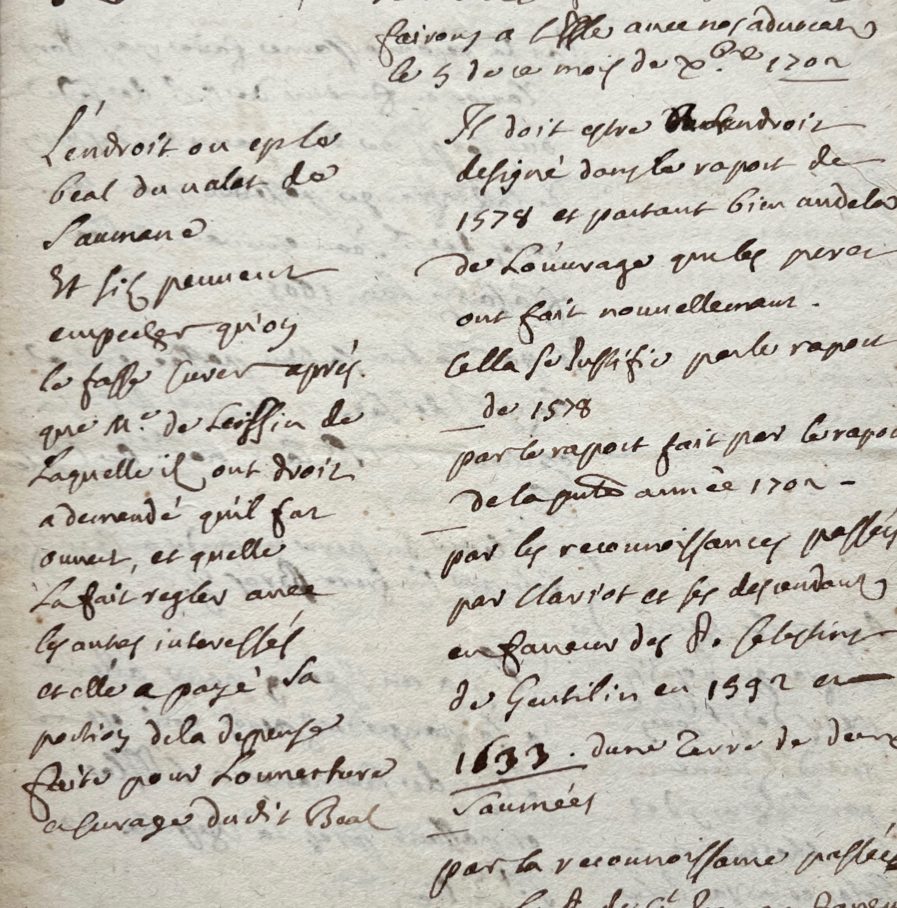 fairons a L'Isle avec nos advocats
le 5 de ce mois de xbre 1702
L'endroit ou est le
beal du valat de
Saumane
Et sils peuvent
empecher qu'on
le fasse curer après
que Me de Leissin de
Laquelle il ont droit
a demandé qu'il fut
ouvert, et quelle
La fait regler avec
les autres interessés
et elle a payé sa
portion de la depense
faite pour Louverture
et curage du dit Beal
Il doit estre Lendroit
designé dans le raport de
1578 et partant bien audela
de Louvrage que les peres
ont fait nouvellement.
Cella se Justifie par le raport
de 1578
par le raport fait par le rapor
de la pnte année 1702 -
par les reconnoissances passées
par Clariot et ses descendants
en faveur des P. Celestins
de Gentilin en 1592 et
1633. dune Terre de deux
Saumées
par la reconnoissance passées